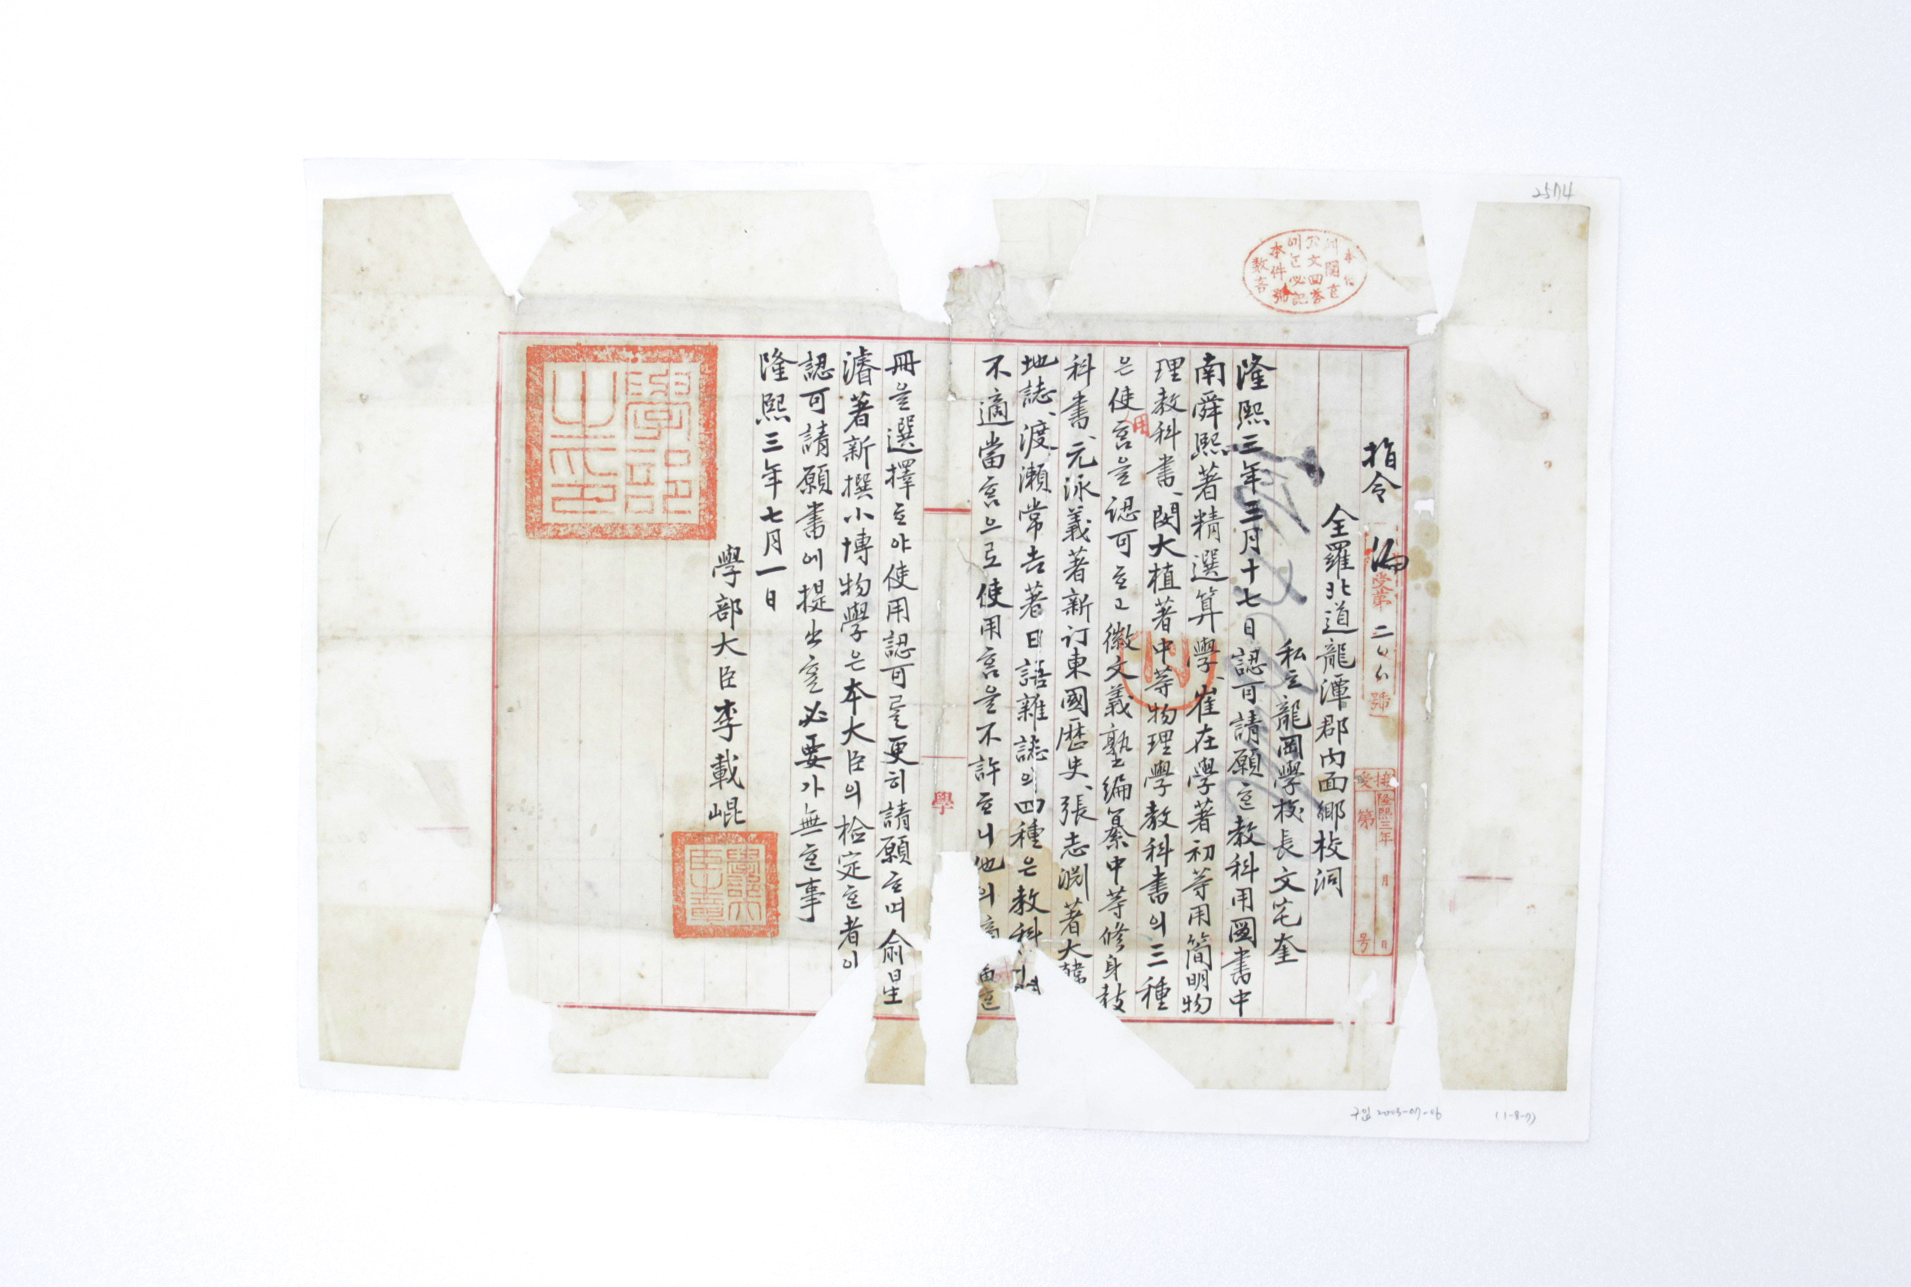 指令 編
受第二六六號
全羅北道龍潭郡內面鄕校洞
私立龍岡學校長文宅奎
隆熙三年三月十七日認可請願ᄒᆞᆫ敎科用圖書中
南舜熙著精選算學、崔在學著初等用簡明物
理敎科書、閔大植著中等物理學敎科書의三種
은使用홈을認可ᄒᆞ고徽文義塾編纂中等修身敎
科書、元泳義著新訂東國歷史、張志淵著大韓
地誌、渡瀨常吉著日語雜誌의四種은敎科
不適當홈으로使用홈을不許ᄒᆞ니他의
冊을選擇ᄒᆞ야使用認可를更히請願ᄒᆞ며兪星
濬著新撰小博物學은本大臣의檢定ᄒᆞᆫ者이
認可請願書에提出ᄒᆞᆯ必要가無ᄒᆞᆫ事
隆熙三年七月一日
學部大臣李載崐
學部之印
學部大臣之章
學
接受
隆熙三年 月 日
第 号
2574
구입 2005-07-06
(1-8-7)